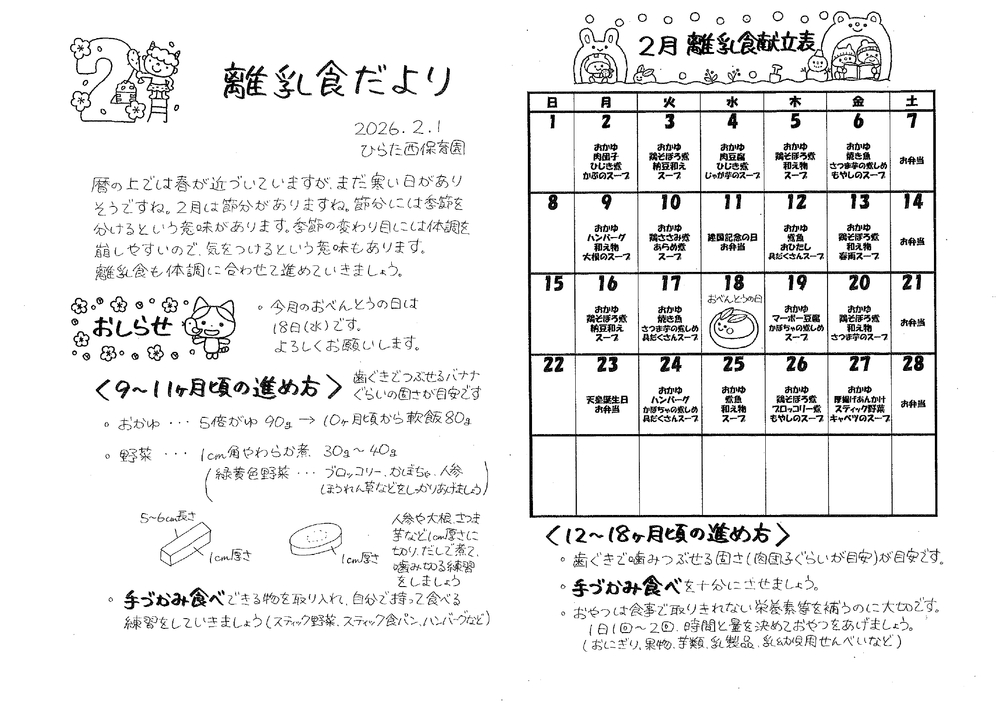 離乳食だより
2026.2.1
ひらた西保育園
暦の上では春が近づいていますが、まだ寒い日があり
そうですね。2月は節分がありますね。節分には季節を
分けるという意味があります。季節の変わり目には体調を
崩しやすいので、気をつけるという意味もあります。
離乳食も体調に合わせて進めていきましょう。
おしらせ
。今月のおべんとうの日は
18日(水)です。
よろしくお願いします。
〈9〜11ヶ月頃の進め方〉
歯ぐきでつぶせるバナナ
ぐらいの固さが目安です
。おかゆ ・・・ 5倍がゆ 90g → 10ヶ月頃から軟飯80g
。野菜 ・・・ 1cm角やわらか煮 30g〜40g
(緑黄色野菜 ・・・ ブロッコリー、かぼちゃ、人参
ほうれん草などをしっかりあげましょう)
5〜6cm長さ
1cm厚さ
1cm厚さ
人参や大根、さつま
芋など1cm厚さに
切り、だしで煮て、
噛み切る練習
をしましょう
。手づかみ食べできる物を取り入れ、自分で持って食べる
練習をしていきましょう(スティック野菜、スティック食パン、ハンバーグなど)
2月 離乳食献立表
日 月 火 水 木 金 土
1 2 3 4 5 6 7
おかゆ
肉団子
ひじき煮
かぶのスープ
おかゆ
鶏そぼろ煮
納豆和え
スープ
おかゆ
肉豆腐
ひじき煮
じゃが芋のスープ
おかゆ
鶏そぼろ煮
和え物
スープ
おかゆ
焼き魚
さつま芋の煮しめ
もやしのスープ
お弁当
8 9 10 11 12 13 14
おかゆ
ハンバーグ
和え物
大根のスープ
おかゆ
鶏ささみ煮
あらめ煮
スープ
建国記念の日
お弁当
おかゆ
煮魚
おひたし
具だくさんスープ
おかゆ
鶏そぼろ煮
和え物
春雨スープ
お弁当
15 16 17 18 19 20 21
おかゆ
鶏そぼろ煮
納豆和え
スープ
おかゆ
焼き魚
さつま芋の煮しめ
具だくさんスープ
おべんとうの日
おかゆ
マーボー豆腐
かぼちゃの煮しめ
スープ
おかゆ
鶏そぼろ煮
和え物
さつま芋のスープ
お弁当
22 23 24 25 26 27 28
天皇誕生日
お弁当
おかゆ
ハンバーグ
かぼちゃの煮しめ
具だくさんスープ
おかゆ
煮魚
和え物
スープ
おかゆ
鶏そぼろ煮
ブロッコリー煮
もやしのスープ
おかゆ
厚揚げあんかけ
スティック野菜
キャベツのスープ
お弁当
〈12〜18ヶ月頃の進め方〉
。歯ぐきで噛みつぶせる固さ(肉団子ぐらいが目安)が目安です。
。手づかみ食べを十分にさせましょう。
。おやつは食事で取りきれない栄養素等を補うのに大切です。
1日1回〜2回、時間と量を決めておやつをあげましょう。
(おにぎり、果物、芋類、乳製品、乳幼児用せんべいなど)